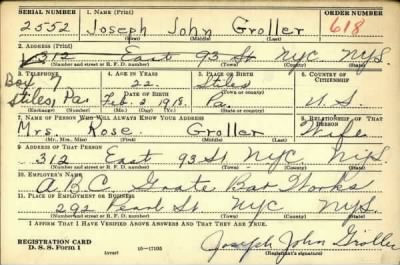 SERIAL NUMBER 1. NAME (Print) ORDER NUMBER
2552 Joseph John Groller 618
(First) (Middle) (Last)
2. ADDRESS (Print)
312 East 93 St NYC NYS.
(Number and street or R. F. D. number) (Town) (County) (State)
3. TELEPHONE 4. AGE IN YEARS 5. PLACE OF BIRTH 6. COUNTRY OF CITIZENSHIP
Box 7 22 Stiles
DATE OF BIRTH (Town or county)
Stiles, Pa. Feb 2 1918. Pa. U.S.
(Exchange) (Number) (Mo.) (Day) (Yr.) (State or country)
7. NAME OF PERSON WHO WILL ALWAYS KNOW YOUR ADDRESS 8. RELATIONSHIP OF THAT PERSON
Mrs. Rose Groller Wife
(Mr., Mrs., Miss) (First) (Middle) (Last)
9. ADDRESS OF THAT PERSON
312 East 93 St NYC NYS.
(Number and street or R. F. D. number) (Town) (County) (State)
10. EMPLOYER'S NAME
A.B.C. Grate Bar Works
11. PLACE OF EMPLOYMENT OR BUSINESS
292 Pearl St NYC NYS.
(Number and street or R. F. D. number) (Town) (County) (State)
I AFFIRM THAT I HAVE VERIFIED ABOVE ANSWERS AND THAT THEY ARE TRUE.
REGISTRATION CARD
D. S. S. Form 1 (over) 16—17105 Joseph John Groller
(Registrant's signature)